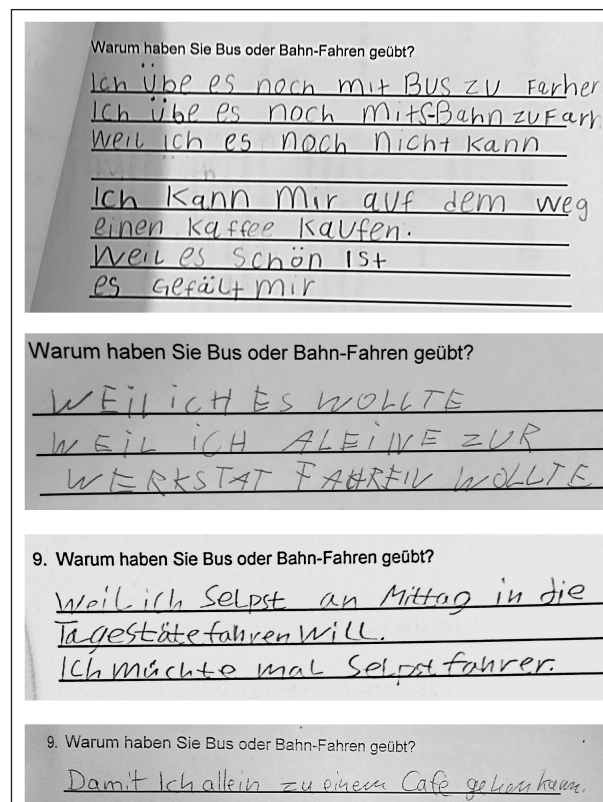 Warum haben Sie Bus oder Bahn-Fahren geübt?
Ich übe es noch mit Bus zu Farher
Ich übe es noch mit S-Bahn zu Farh
Weil ich es noch nicht kann
Ich kann mir auf dem weg
einen kaffee kaufen.
Weil es schön ist
es Gefält mir
Warum haben Sie Bus oder Bahn-Fahren geübt?
WEIL ICH ES WOLLTE
WEIL ICH ALEINE ZUR
WERKSTAT FAHREN WOLLTE
9. Warum haben Sie Bus oder Bahn-Fahren geübt?
Weil ich Selpst an Mittag in die
Tagestäte fahren will.
Ich müchte mal Selpst fahrer.
9. Warum haben Sie Bus oder Bahn-Fahren geübt?
Damit Ich allein zu einem Cafe gehen kann.